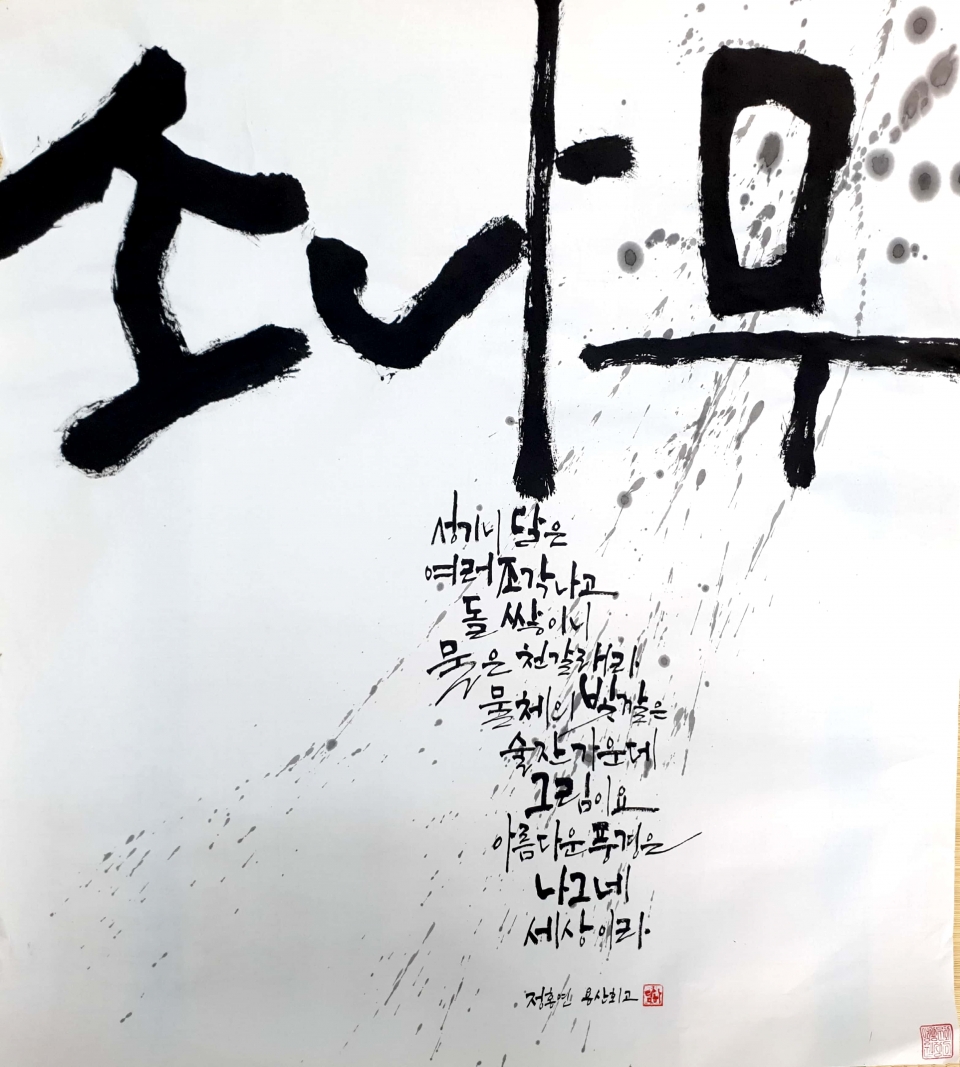 소나무
성기니 달은
여러 조각나고
돌 쌓이니
물은 천갈래라
물체의 빛깔은
술잔 가운데
그림이요
아름다운 풍경은
나그네
세상이라
정홍연 용산회고